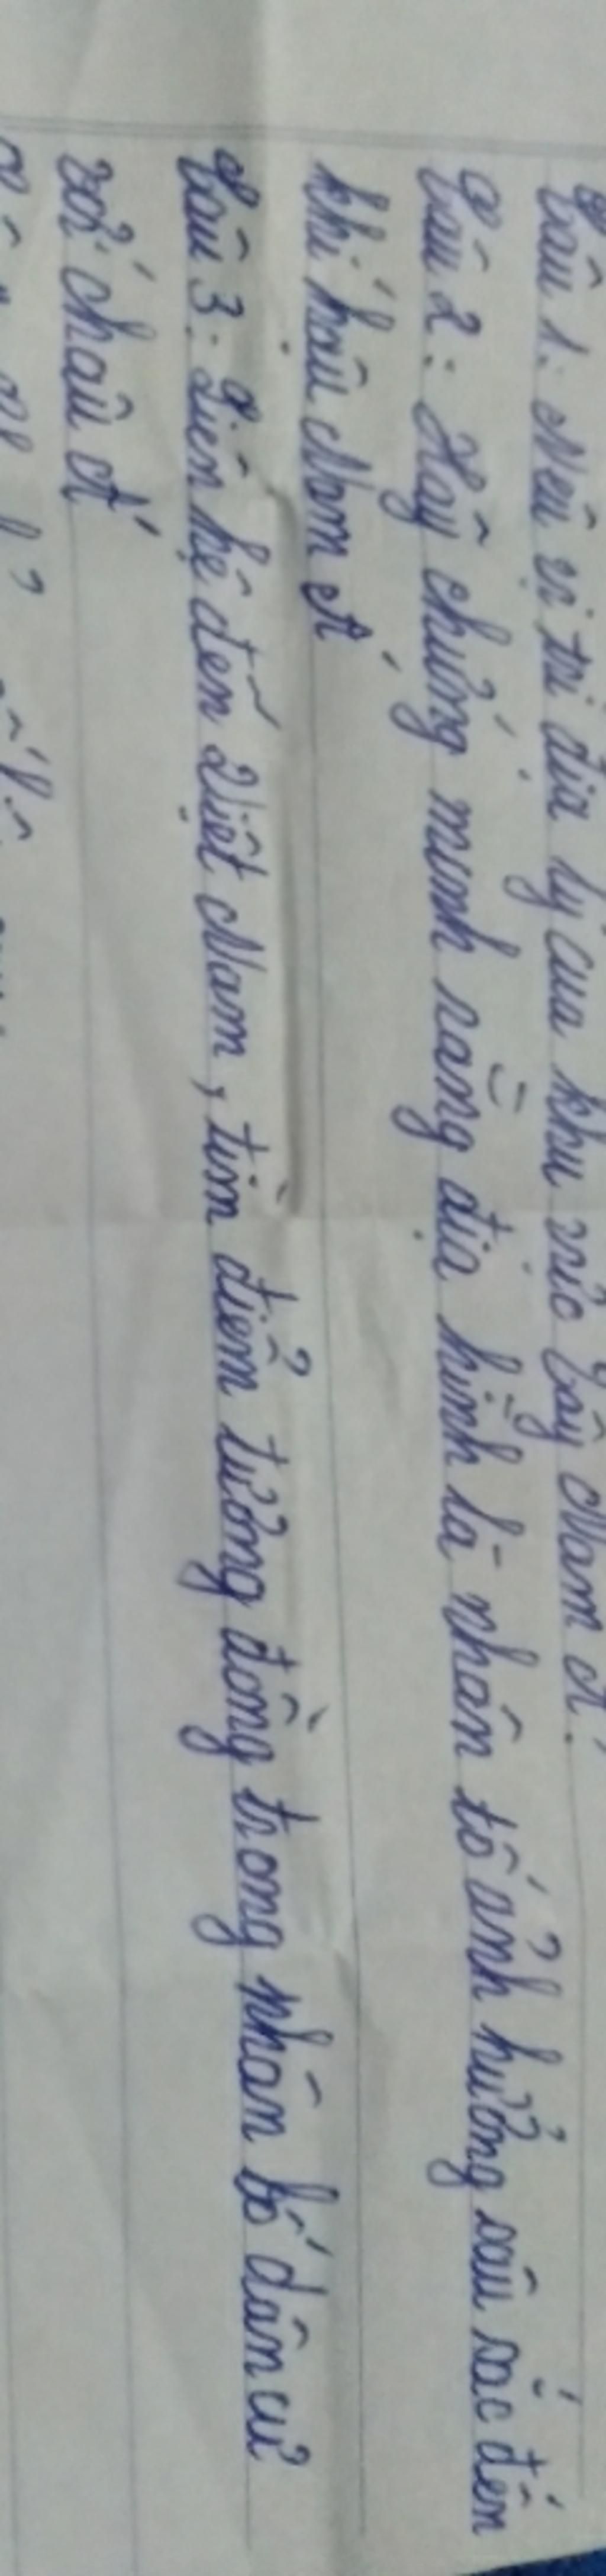 Câu 1: Nêu vị trí địa lý của khu vực Tây Nam Á.
Câu 2: Hãy chứng minh rằng địa hình là nhân tố ảnh hưởng sâu sắc đến
khí hậu Nam Á
Câu 3: Liên hệ đến Việt Nam, tìm điểm tương đồng trong phân bố dân cư
với châu Á